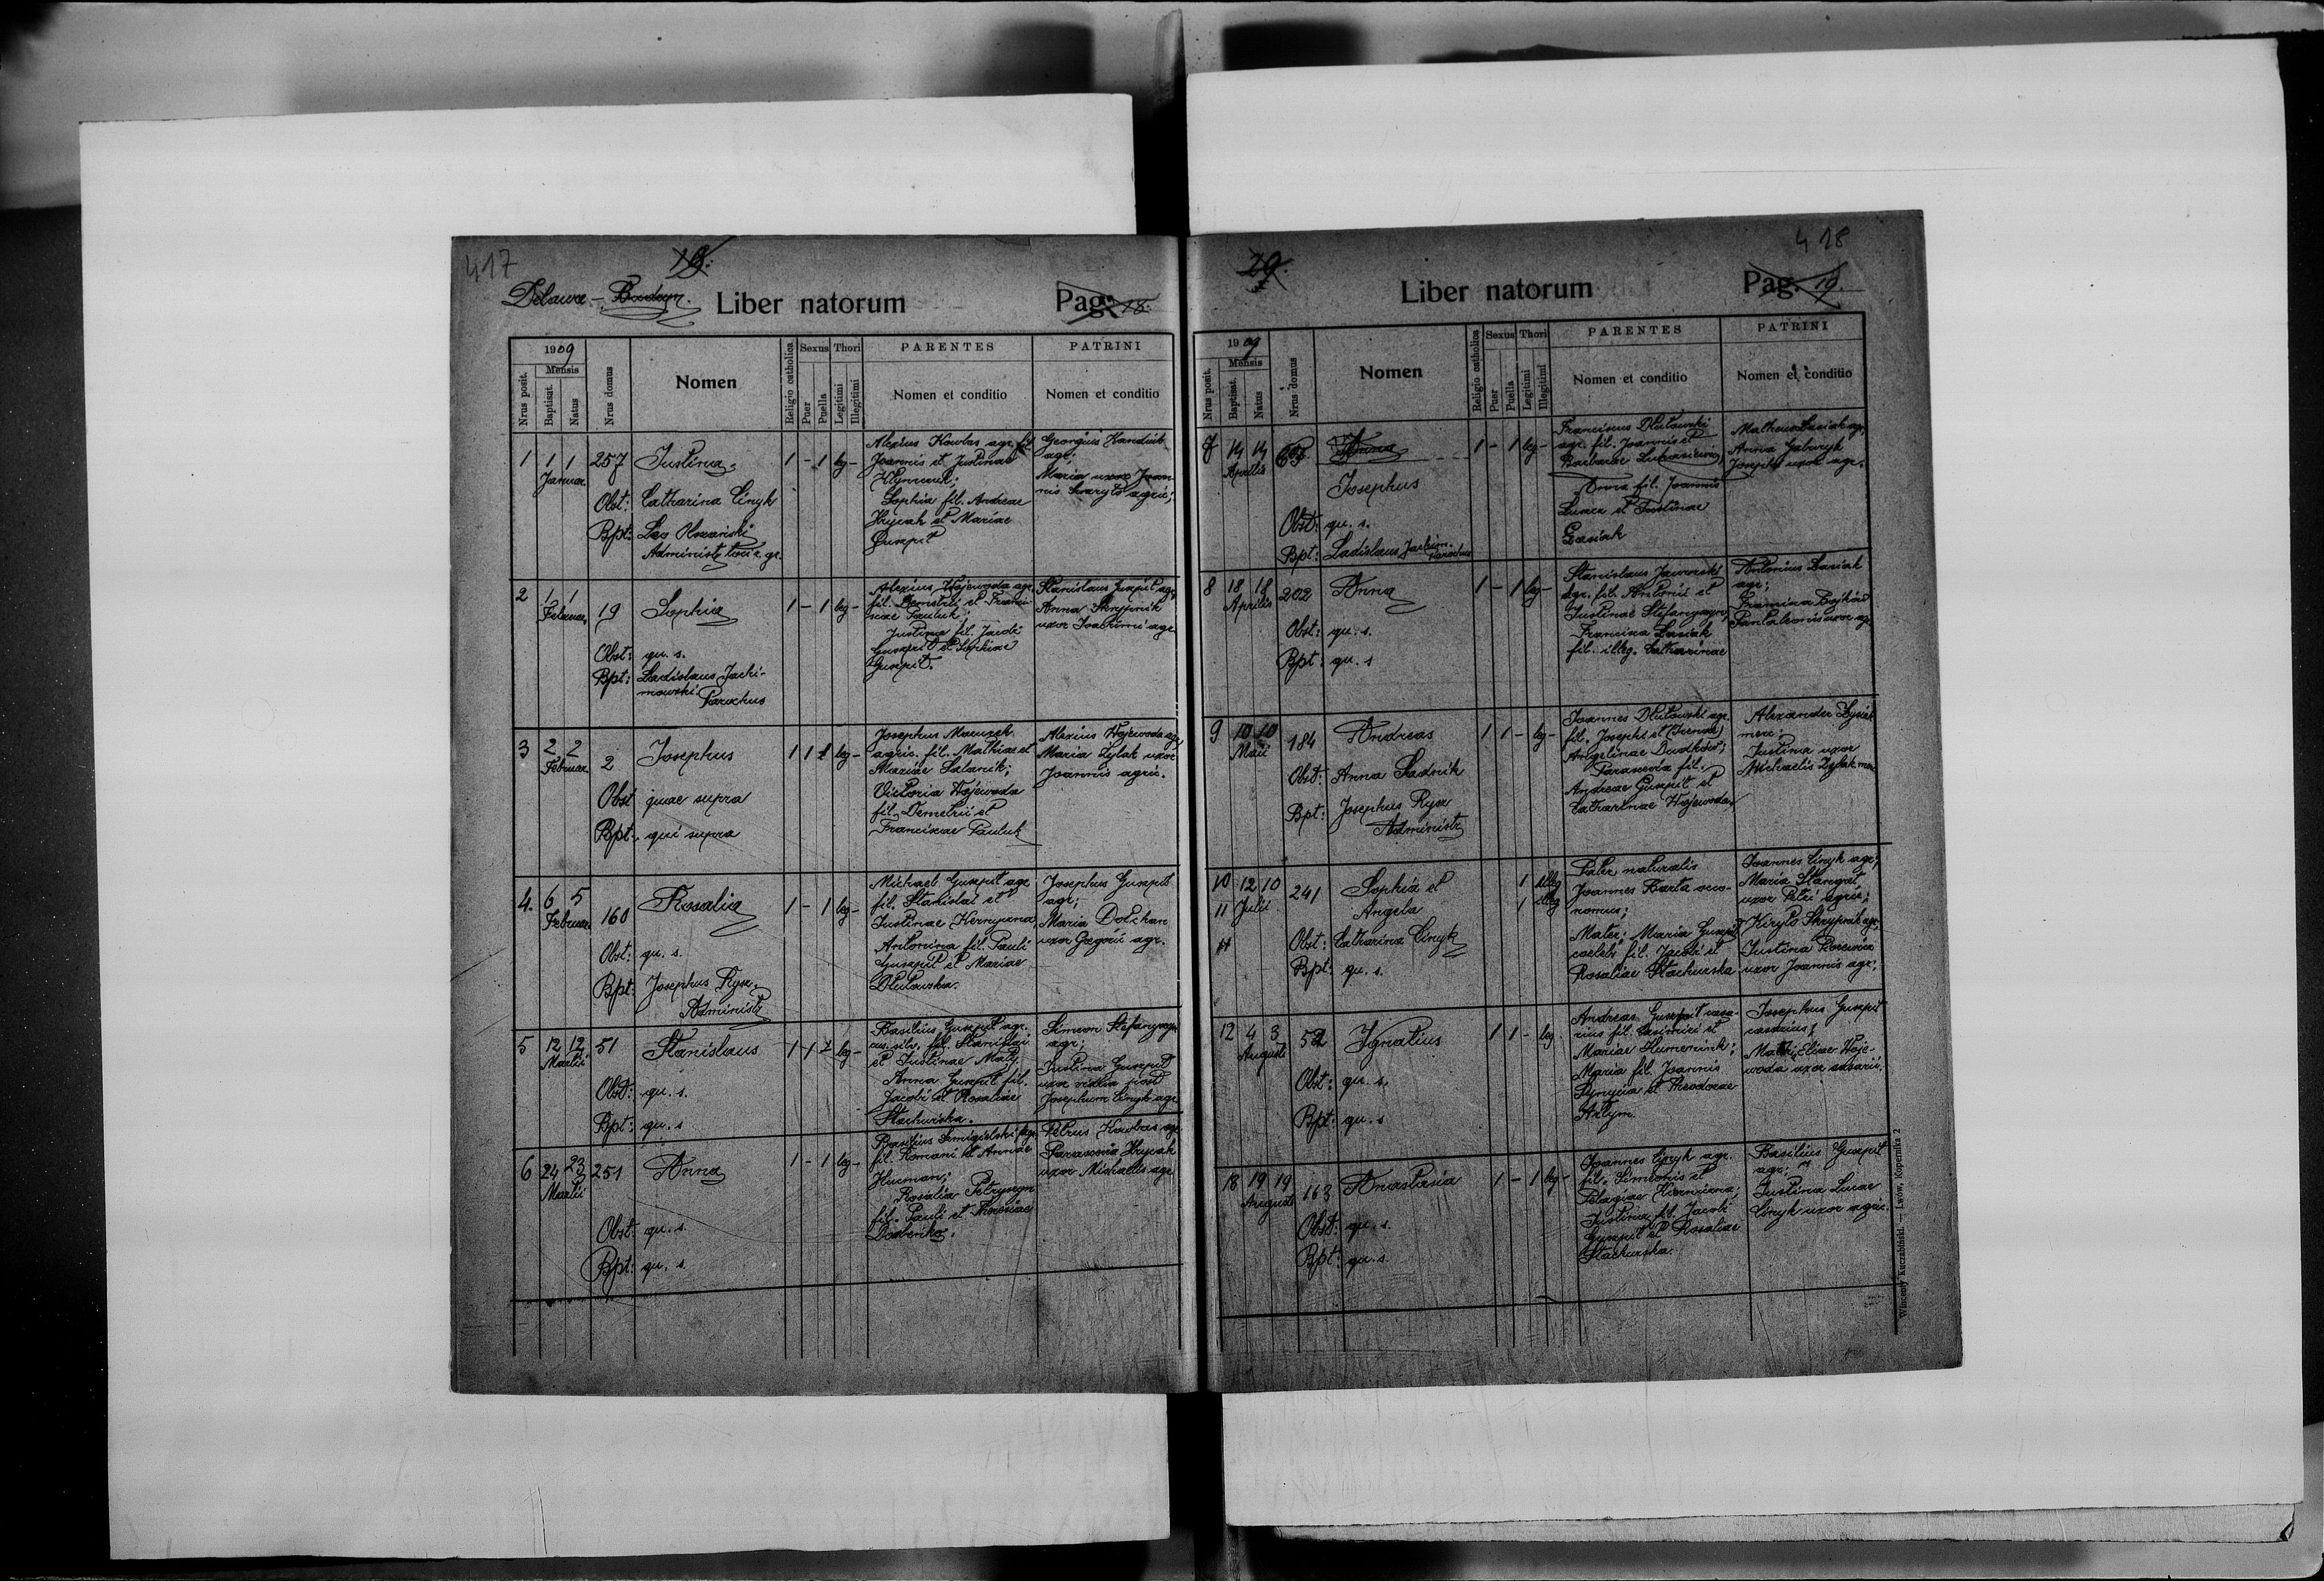 417
18.
Delawa - Bodgar.
Liber natorum
Pag. 18.
1909
Nrus posit.
Mensis
Baptisat.
Natus
Nrus domus
Nomen
Religio catholica
Sexus
Puer
Puella
Thori
Legitimi
Illegitimi
PARENTES
Nomen et conditio
PATRINI
Nomen et conditio
1 1 1 257 Justina 1 - 1 leg -
Januar.
Obst: Catharina Cinyk
Bpt: Leo Olszański
Administr. loci r. gr.
Alexius Kowbas agr. fil.
Joannis et Justinae
Sophia fil. Andreae
Hrycak et Mariae
Guszpit
Georgius Handiuk
agr.
Maria uxor Joan
nis agric;
2 1 1 19 Sophia 1 - 1 leg -
Februar.
Obst: qu. s.
Bpt: Ladislaus Jachi-
mowski Parochus
Alexius Wojewoda agr.
fil. Demetrii et Franci-
scae Pauluk;
Justina fil. Jacobi
Guszpit et Sophiae
Guszpit.
Stanislaus Guszpit agr.
Anna Skrypnik
uxor Joachimi agr.
3 2 2 2 Josephus 1 1 1 leg -
Februar.
Obst quae supra
Bpt: qui supra
Josephus Mazurek
agric. fil. Mathiae et
Mariae Salanik;
Victoria Wojewoda
fil. Demetrii et
Franciscae Pauluk
Alexius Wojewoda agr.
Maria Zylak uxor
Joannis agric.
4. 6 5 160 Rosalia 1 - 1 leg -
Februar.
Obst: qu. s.
Bpt: Josephus Rysz.
Administr
Michael Guszpit agr.
fil. Stanislai et
Justinae
Antonina fil. Pauli
Guszpit et Mariae
Dlutowska.
Josephus Guszpit
agr;
Maria Dolchan
uxor Gregorii agr.
5 12 12 51 Stanislaus 1 1 1 leg -
Martii
Obst: qu. s.
Bpt: qu. s
Basilius Guszpit agr.
fil. Stanislai
et Justinae
Anna Guszpit fil.
Jacobi et Rosaliae
Stachurska.
Simeon Stefanyszyn
agr;
Justina Guszpit
uxor vidua post
Josephum Cinyk agr.
6 24 23 251 Anna 1 - 1 leg -
Martii
Obst: qu. s.
Bpt: qu. s.
Basilius Smigielski agr.
fil. Romani et Annae
Hucman;
Rosalia Petryszyn
fil. Pauli et Theresiae
Petrus Kowbas agr.
Parascevia Hrycak
uxor Michaelis agr.
418
29.
Liber natorum
Pag. 19.
1909
Nrus posit.
Mensis
Baptisat.
Natus
Nrus domus
Nomen
Religio catholica
Sexus
Puer
Puella
Thori
Legitimi
Illegitimi
PARENTES
Nomen et conditio
PATRINI
Nomen et conditio
7 14 14 Anna 1 - 1 leg -
Aprilis
Josephus
Obst: qu. s.
Bpt: Ladislaus Jachim.
Parochus
Franciscus Dlutowski
agr. fil. Joannis et
Barbarae Lukasiewicz;
Anna fil. Joannis
et Justinae
Lasiak
Matheus Lasiak agr,
Anna
Josephi uxor agr.
8 18 18 202 Anna 1 - 1 leg -
Aprilis
Obst: qu. s.
Bpt: qu. s
Stanislaus Jaworski
agr. fil. Antonii et
Justinae Stefanyszyn;
Francisca Lasiak
fil. illeg. Catharinae
Antonius Lasiak
agr;
Francisca
Pantaleonis uxor agr.
9 10 10 184 Andreas 1 1 - leg -
Maii
Obst: Anna Sadnik
Bpt: Josephus Rysz
Administr
Joannes Dlutowski agr.
fil. Josephi et (Irenae)
Angelinae
Parascevia fil.
Andreae Guszpit et
Catharinae Wojewoda
Alexander
merc;
Justina uxor
Michaelis Zylak merc.
10 12 10 241 Sophia et 1 illeg
11 Julii Angela 1 illeg
11
Obst: Catharina Cinyk
Bpt: qu. s.
Pater naturalis
Joannes Barta oeco-
nomus;
Mater: Maria Guszpit
coelebs fil. Jacobi et
Rosaliae Stachurska
Joannes Cinyk agr;
Maria
uxor Petri agric;
Kirylo Skrypnik agr;
Justina
uxor Joannis agr;
12 4 3 52 Ignatius 1 1 - leg.
Augusti
Obst: qu. s.
Bpt: qu. s.
Andreas Guszpit casa-
rius fil. Casimiri et
Mariae
Maria fil. Joannis
et Theodorae
Artym.
Josephus Guszpit
casarius;
Eliae Woje-
woda uxor casarii.
18 19 19 163 Anastasia 1 - 1 leg -
Augusti
Obst: qu. s.
Bpt: qu. s.
Joannes Cinyk agr.
fil. Simeonis et
Pelagiae
Justina fil. Jacobi
Guszpit et Rosaliae
Stachurska.
Basilius Guszpit
agr;
Justina Lucae
Cinyk uxor agric.
Wincenty Kuczabiński. — Lwów, Kopernika 2